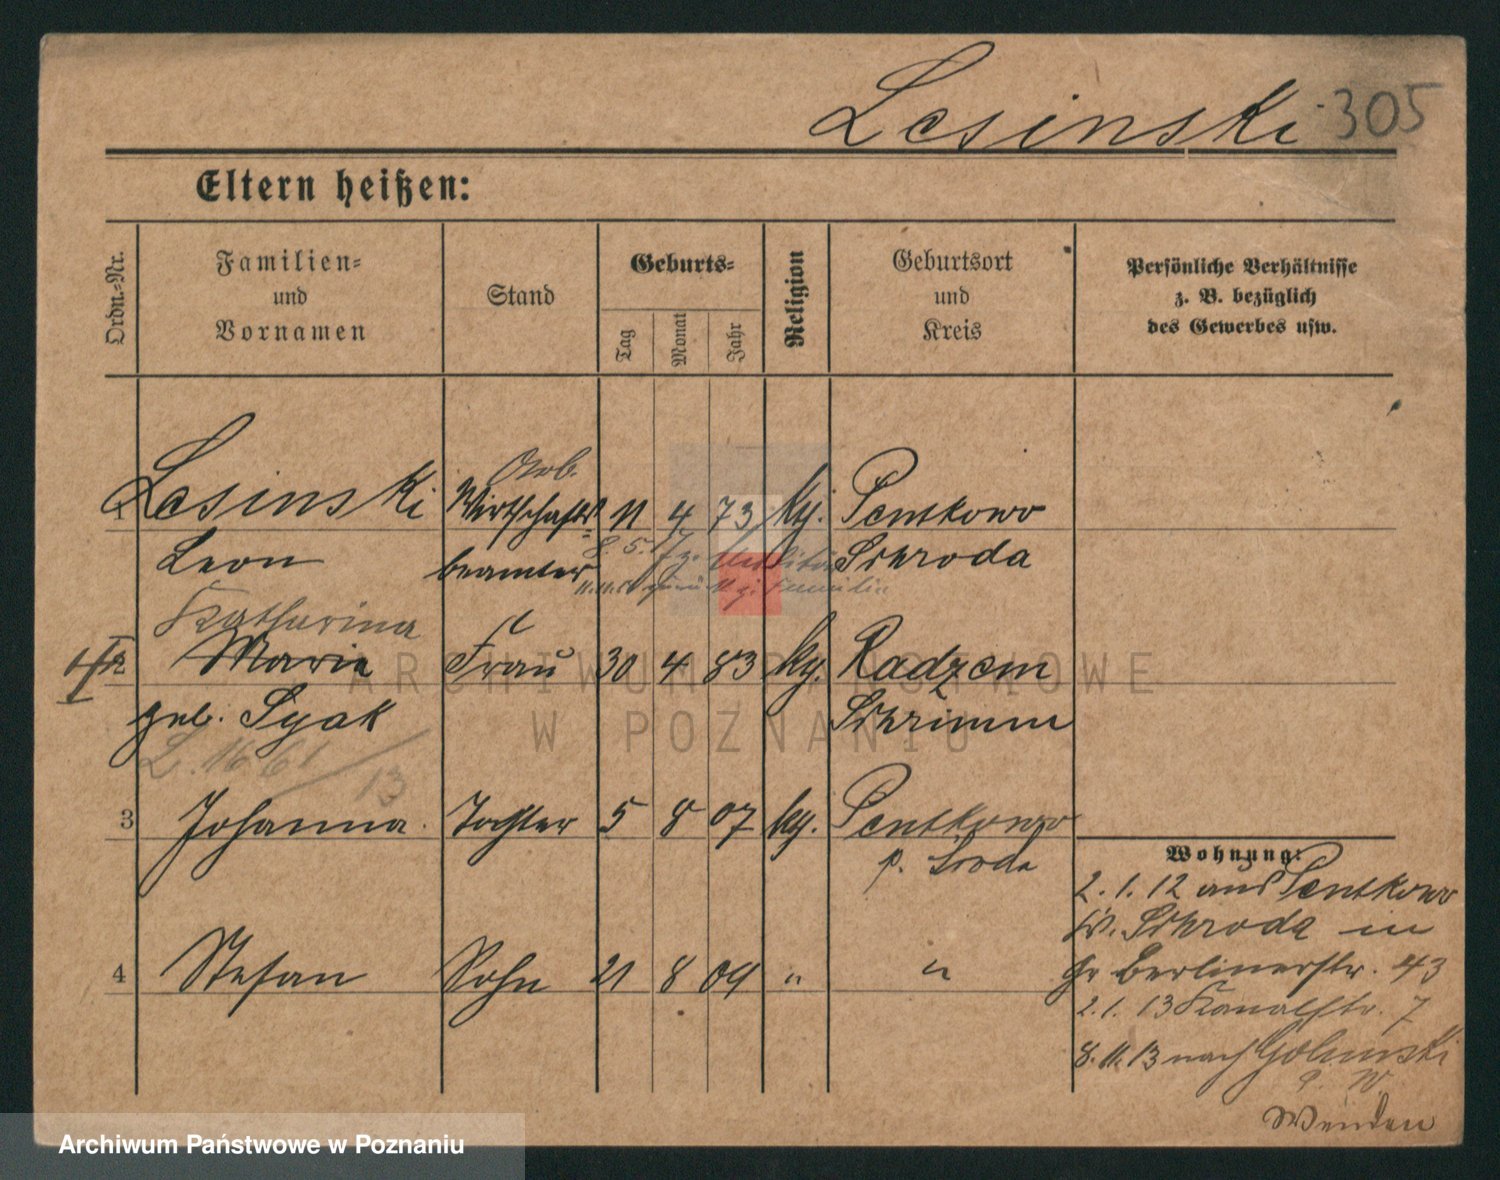 Lesinski 305
Eltern heißen:
Ordn.-Nr.
Familien-
und
Vornamen
Stand
Geburts-
Tag
Monat
Jahr
Religion
Geburtsort
und
Kreis
Persönliche Verhältnisse
z. B. bezüglich
des Gewerbes usw.
Arb.
1 Lesinski Wirtschafts- 11 4 73 kg. Pentkowo
Leon beamter Schroda
8. 5. z. Militär
zurück z. Familie
Katharina
2 Marie Frau 30 4 83 kg. Radzem
geb. Schrimm
L. 1661/13
3 Johanna. Tochter 5 8 07 kg. Pentkowo
p. Sroda
4 Stefan Sohn 21 8 09 " "
Wohnung:
2. 1. 12 aus Pentkowo
Schroda in
Gr Berlinerstr. 43
2. 1. 13 Kanalstr. 7
8. 11. 13 nach
Wenden
ARCHIWUM PAŃSTWOWE
W POZNANIU
Archiwum Państwowe w Poznaniu